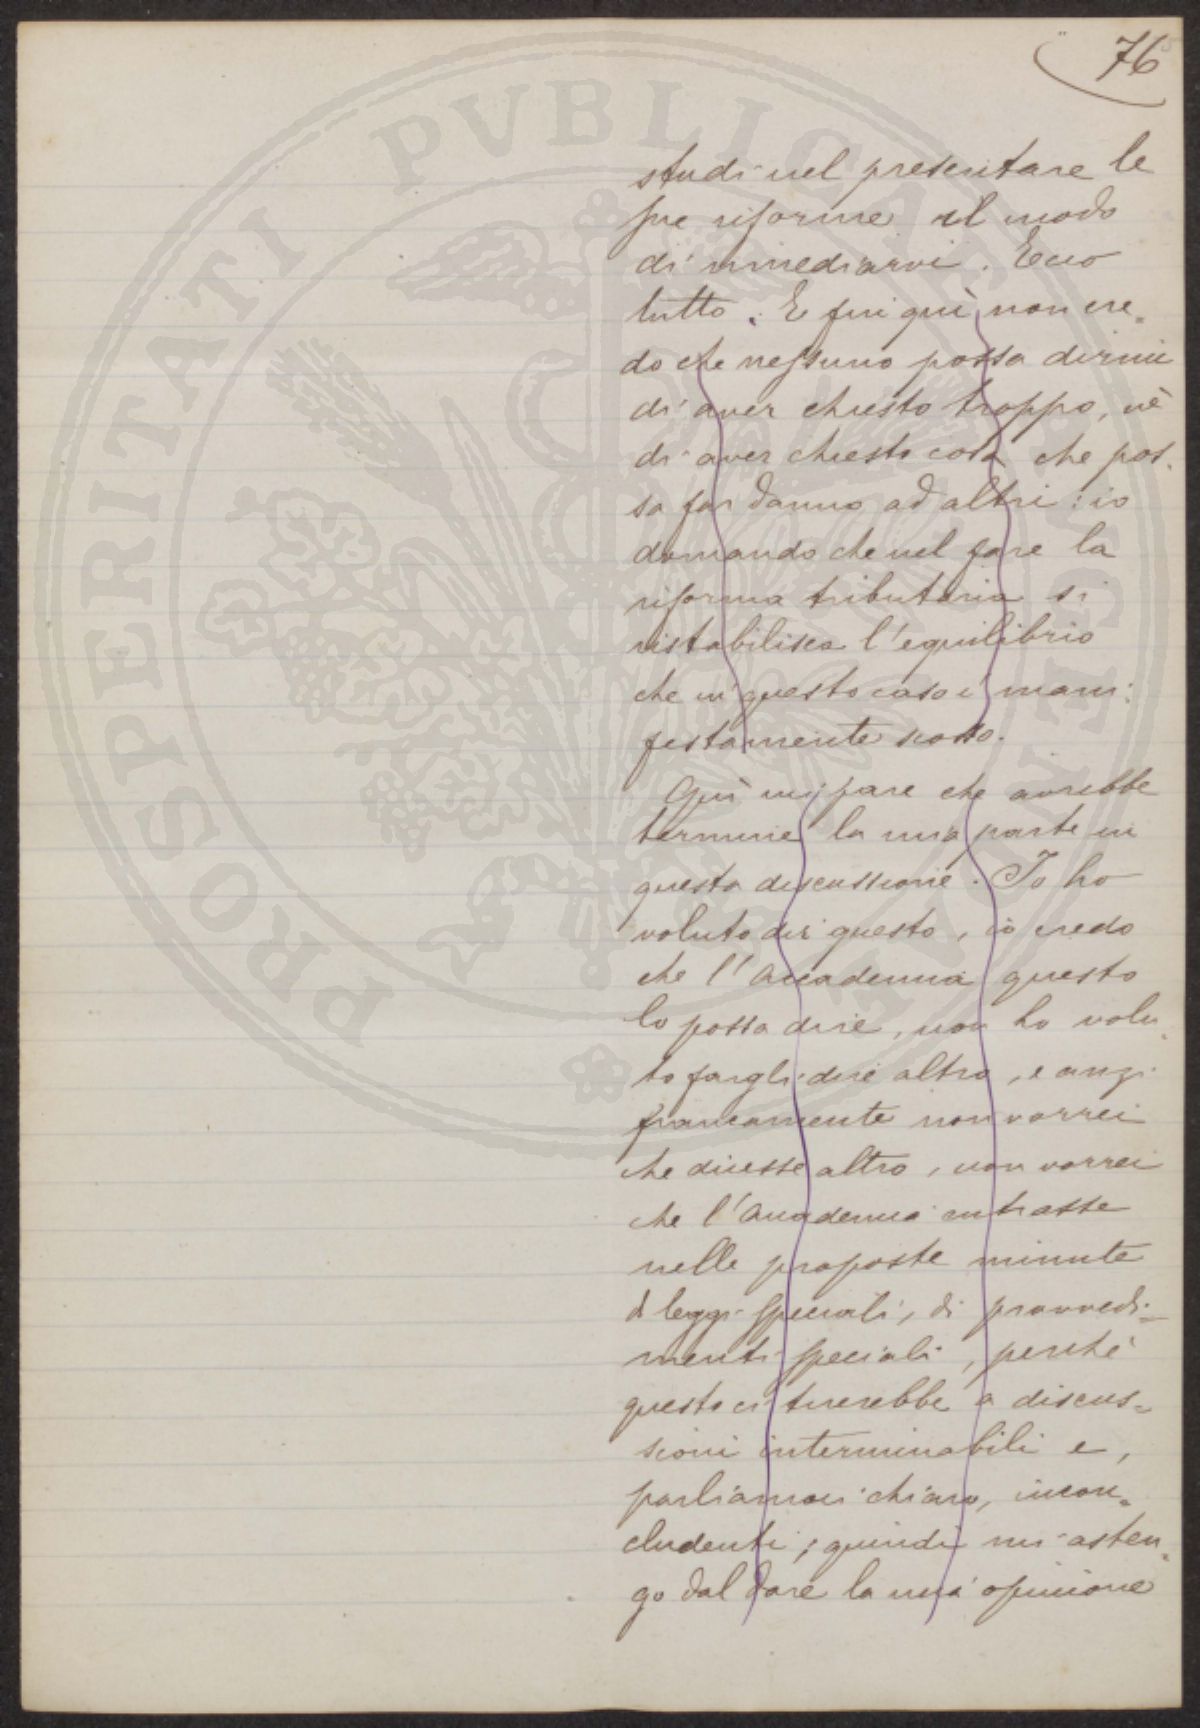 76
studi nel presentare le
sue riforme il modo
di rimediarvi. Ecco
tutto. E fin quì non cre=
do che nessuno possa dirmi
di aver chiesto troppo, nè
di aver chiesto cosa che pos=
sa far danno ad altri: io
domando che nel fare la
riforma tributaria si
ristabilisca l'equilibrio
che in questo caso è mani=
festamente rotto.
Quì mi pare che avrebbe
termine la mia parte in
questa discussione. Io ho
voluto dir questo, io credo
che l'Accademia questo
lo possa dire, non ho volu=
to fargli dire altro, e anzi
francamente non vorrei
che dicesse altro, non vorrei
che l'Accademia entrasse
nelle proposte minute
di leggi speciali, di provvedi=
menti speciali, perchè
questo ci tirerebbe a discus=
sioni interminabili e,
parliamoci chiaro, incon=
cludenti; quindi mi asten=
go dal dare la mia opinione
PROSPERITATI PVBLICAE AVGENDAE